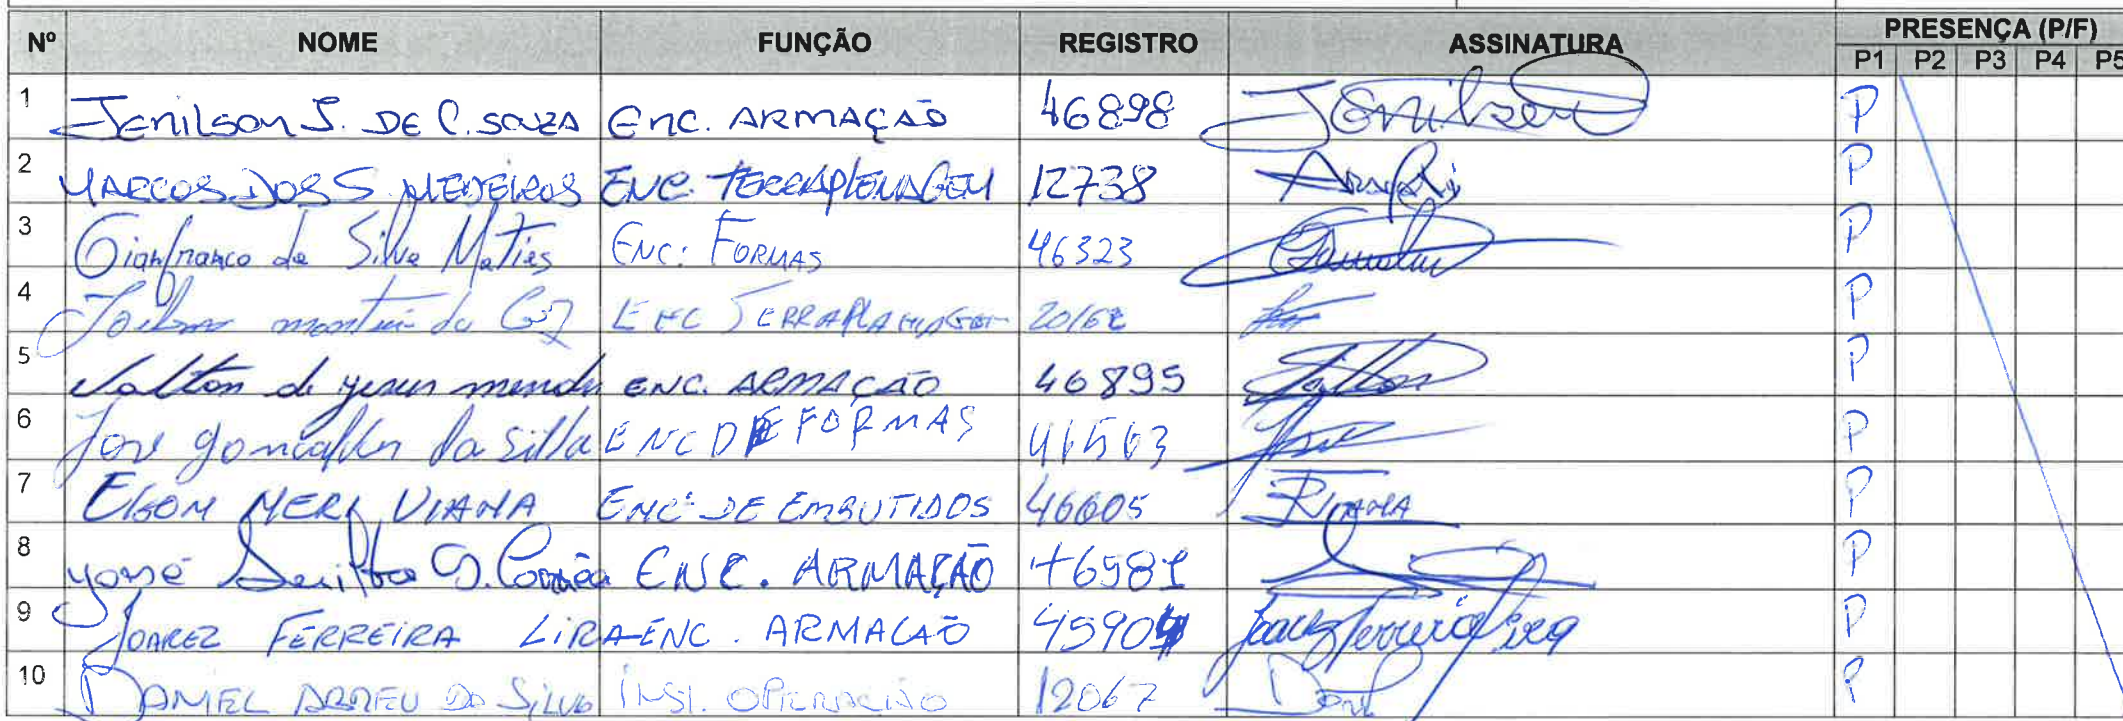 Nº NOME FUNÇÃO REGISTRO ASSINATURA PRESENÇA (P/F)
P1 P2 P3 P4 P5
1 JENILSON J. DE C. SOUZA ENC. ARMAÇÃO 46898 Jenilson P
2 MARCOS DOS S MEDEIROS ENC TERRAPLENAGEM 12738 P
3 Gianfranco da Silva Matias ENC: FORMAS 46323 P
4 ENC TERRAPLANAGEM P
5 de jesus ENC. ARMAÇÃO 46895 P
6 Jose da Silva ENC DE FORMAS P
7 NERI VIANA ENC DE EMBUTIDOS 46605 VIANA P
8 José ENC. ARMAÇÃO P
9 JOAREZ FERREIRA LIRA ENC. ARMAÇÃO Joarez Ferreira Lira P
10 DANIEL ABREU DA SILVA 12067 P